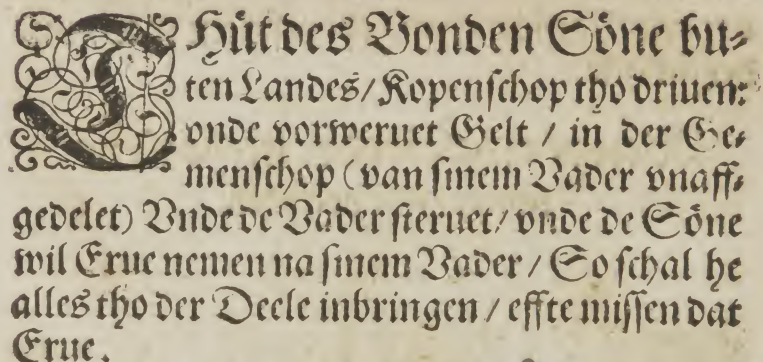 THüt des Bonden Söne bu⸗
ten Landes / Kopenschop tho driuen:
vnde vorweruet Gelt / in der Ge⸗
menschop (van sinem Vader vnaff⸗
gedelet) Vnde de Vader steruet / vnde de Söne
wil Erue nemen na sinem Vader / So schal he
alles tho der Deele inbringen / effte missen dat
Erue.